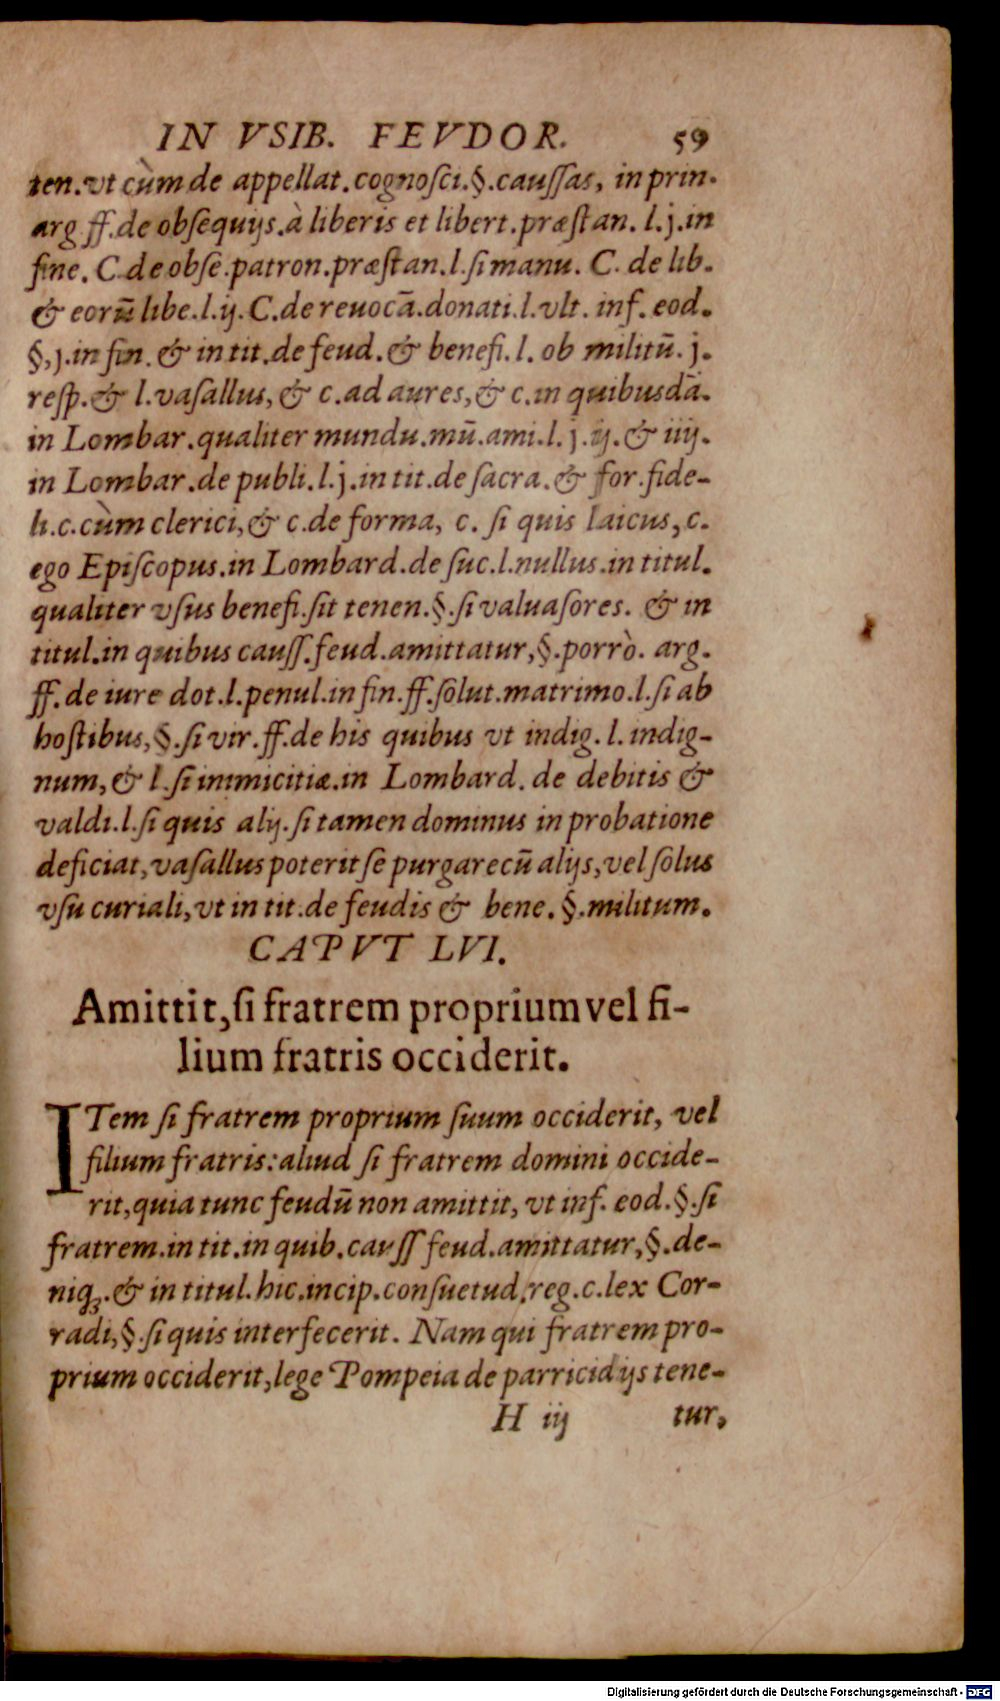 IN VSIB. FEVDOR. 59
ten. vt cùm de appellat. cognosci. §. caussas, in prin.
arg ff. de obsequijs. à liberis et libert. præstan. l. j. in
fine. C. de obse. patron. præstan. l. si manu. C. de lib.
& eorũ libe. l. ij. C. de reuocã. donati. l. vlt. inf. eod.
§, j. in fin. & in tit. de feud. & benefi. l. ob militũ. j.
resp. & l. vasallus, & c. ad aures, & c. in quibusdã.
in Lombar. qualiter mundu. mũ. ami. l. j. ij. & iiij.
in Lombar. de publi. l. j. in tit. de sacra. & for. fide-
li. c. cùm clerici, & c. de forma, c. si quis laicus, c.
ego Episcopus. in Lombard. de suc. l. nullus. in titul.
qualiter vsus benefi. sit tenen. §. si valuasores. & in
titul. in quibus causs. feud. amittatur, §. porrò. arg.
ff. de iure dot. l. penul. in fin. ff. solut. matrimo. l. si ab
hostibus, §. si vir. ff. de his quibus vt indig. l. indig-
num, & l. si inimicitiæ. in Lombard. de debitis &
valdi. l. si quis alij. si tamen dominus in probatione
deficiat, vasallus poterit se purgare cũ alijs, vel solus
vsu curiali, vt in tit. de feudis & bene. §. militum.
CAPVT LVI.
Amittit, si fratrem proprium vel fi-
lium fratris occiderit.
ITem si fratrem proprium suum occiderit, vel
filium fratris: aliud si fratrem domini occide-
rit, quia tunc feudũ non amittit, vt inf. eod. §. si
fratrem. in tit. in quib. causs feud. amittatur, §. de-
niqꝫ. & in titul. hic. incip. consuetud. reg. c. lex Cor-
radi, §. si quis interfecerit. Nam qui fratrem pro-
prium occiderit, lege Pompeia de parricidijs tene-
H iij tur,
Digitalisierung gefördert durch die Deutsche Forschungsgemeinschaft - DFG